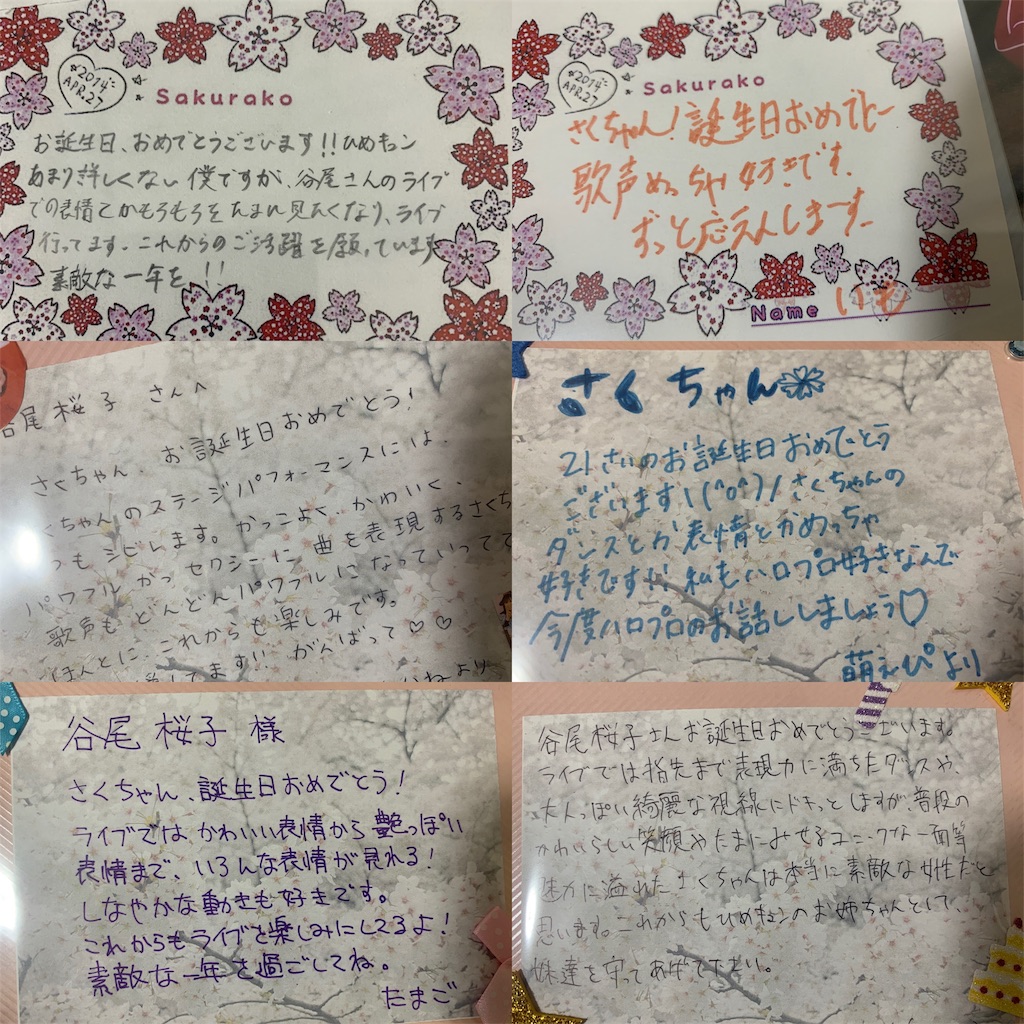 2014
APR.27
Sakurako
お誕生日、おめでとうございます!!ひめキュン
あまり詳しくない僕ですが、谷尾さんのライブ
での表情とかもろもろをたまに見たくなり、ライブ
行ってます。これからのご活躍を願っています
素敵な一年を!!
2014
APR.27
Sakurako
さくちゃん!誕生日おめでとー
歌声めっちゃ好きです。
ずっと応えんします
Name いも
谷尾桜子 さんへ
さくちゃん、お誕生日おめでとう!
くちゃんのステージパフォーマンスには、
つもシビれます。かっこよく、かわいく、
パワフルかつセクシーに曲を表現するさくち
歌声もどんどんパワフルになっていってて
ほんとに、これからも楽しみです。
してます!! がんばって♡♡
より
さくちゃん
21さいのお誕生日おめでとう
ございます\(^o^)/さくちゃんの
ダンスとか表情とかめっちゃ
好きです!!私もハロプロ好きなんで
今度ハロプロのお話ししましょう♡
萌えぴより
谷尾 桜子 様
さくちゃん、誕生日おめでとう!
ライブではかわいい表情から艶っぽい
表情まで、いろんな表情が見れる!
しなやかな動きも好きです。
これからもライブを楽しみにしてるよ!
素敵な一年を過ごしてね。
たまご
谷尾桜子さんお誕生日おめでとうございます。
ライブでは指先まで表現力に満ちたダンスや、
大人っぽい綺麗な視線にドキッとしますが、普段の
かわいらしい笑顔やたまにみせるユニークな一面等
魅力に溢れたさくちゃんは本当に素敵な女性だと
思います。これからもひめキュンのお姉ちゃんとして、
妹達を守ってあげて下さい。